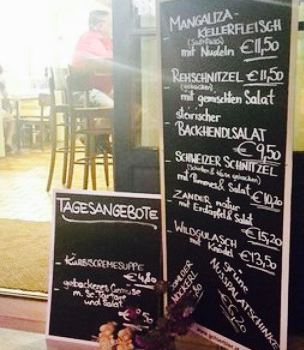 MANGALIZA-
KELLERFLEISCH
mit Nudeln €11,50
REHSCHNITZEL €11,50
(gebacken)
mit gemischten Salat
steirischer
BACKHENDLSALAT
€ 9,50
SCHWEIZER SCHNITZEL
(Schinken & Käse gebacken)
mit Pommes & Salat €10,20
ZANDER natur
mit Erdäpfel & Salat
€15,20
WILDGULASCH
mit Knödel €13,50
TAGESANGEBOTE
KÜRBISCREMESUPPE
€4,80
gebackenes Gemüse
m. Sc. Tartare
und Salat